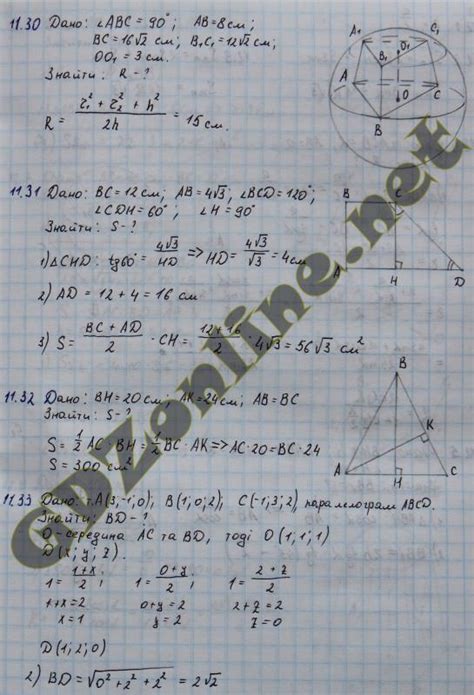 11.30 Дано: ∠ABC = 90°; AB = 8 см;
BC = 16√2 см; B₁C₁ = 12√2 см;
OO₁ = 3 см.
Знайти: R - ?
R = (r₁² + r₂² + h²) / 2h = 15 см.
A₁ C₁ O₁ B₁ A C O B
11.31 Дано: BC = 12 см; AB = 4√3; ∠BCD = 120°;
∠CDH = 60°; ∠H = 90°
Знайти: S - ?
1) △CHD: tg60° = 4√3 / HD => HD = 4√3 / √3 = 4 см
2) AD = 12 + 4 = 16 см
3) S = (BC + AD) / 2 · CH = (12 + 16) / 2 · 4√3 = 56√3 см²
B C A H D
11.32 Дано: BH = 20 см; AK = 24 см; AB = BC
Знайти: S - ?
S = 1/2 AC · BH = 1/2 BC · AK => AC · 20 = BC · 24
S = 300 см²
B K A H C
11.33 Дано: т. A(3; -1; 0); B(1; 0; 2); C(-1; 3; 2) паралелограм ABCD.
Знайти: BD - ?
O - середина AC та BD, тоді O(1; 1; 1)
D(x; y; z).
1 = (1+x) / 2; 1 = (0+y) / 2; 1 = (2+z) / 2
1+x = 2 0+y = 2 2+z = 2
x = 1 y = 2 z = 0
D(1; 2; 0)
2) BD = √(0² + 2² + 2²) = 2√2
GDZonline.net